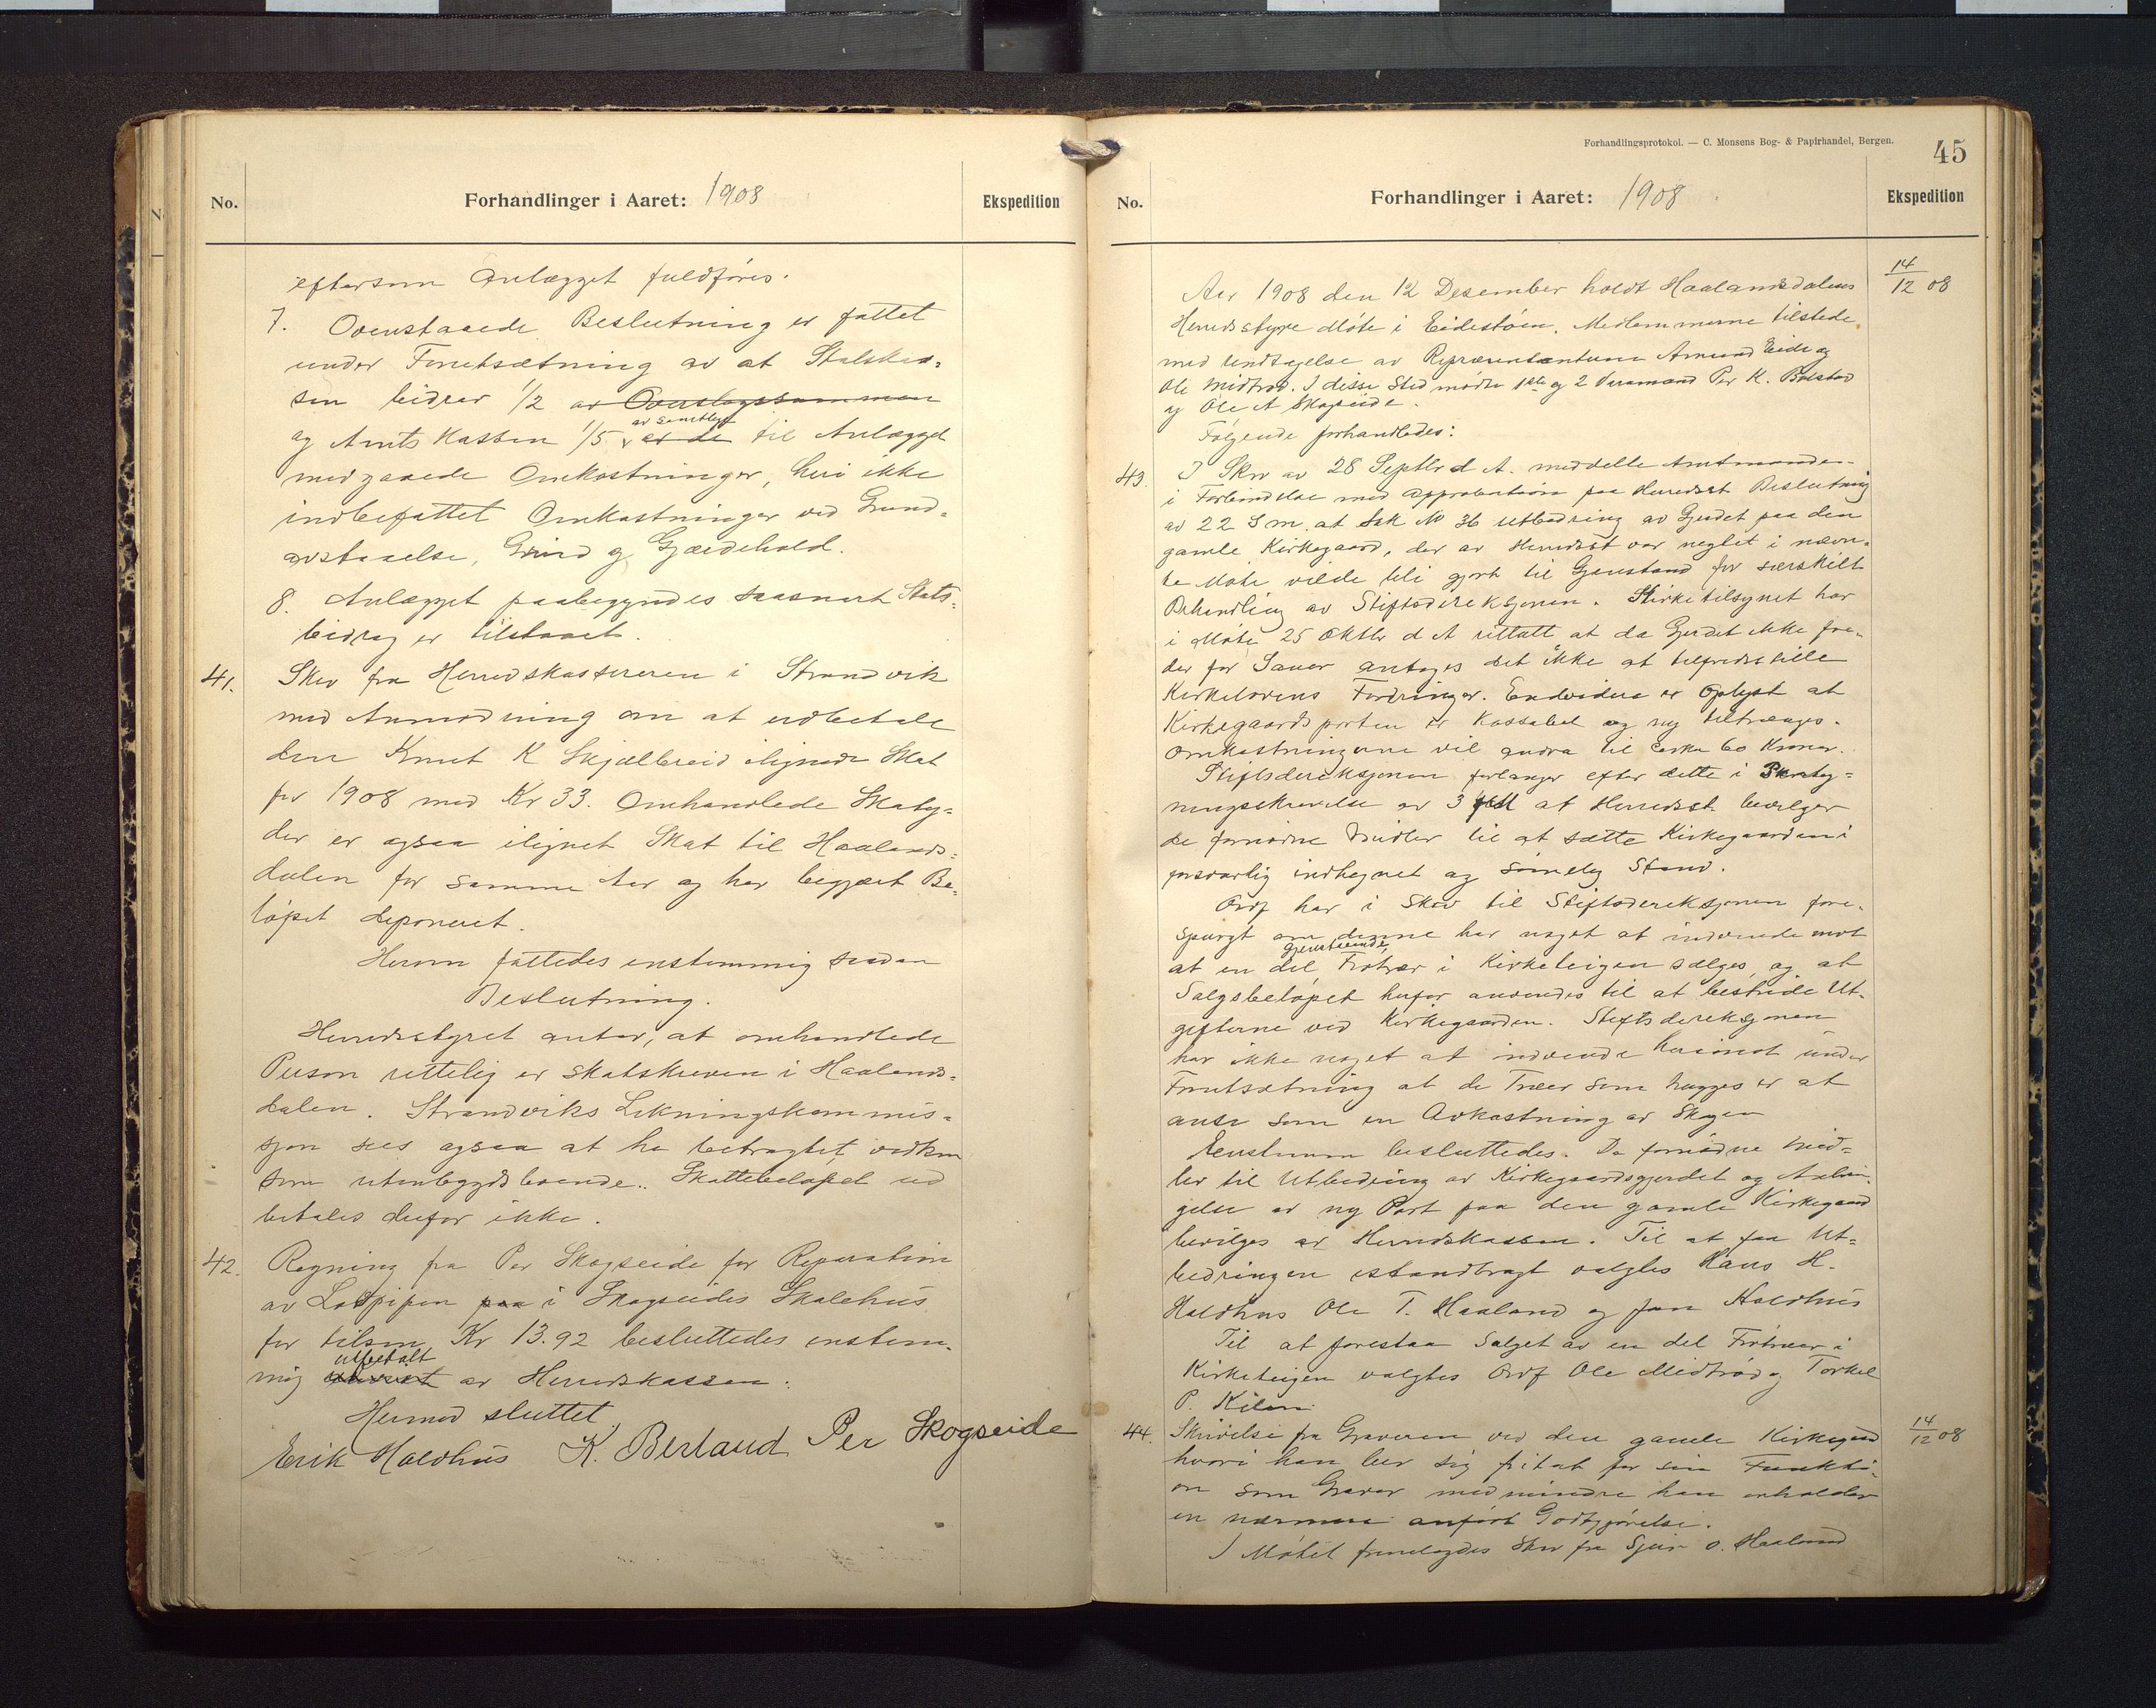 No.
Forhandlinger i Aaret: 1908
Ekspedition
eftersom Anlægget fuldføres.
7. Ovenstaaede Beslutning er fattet
under Forutsætning av at Statskas-
sen bidrar 1/2 av Overslagssummen
og Amts Kassen 1/5 av samtlige av de til Anlægget
medgaaede Omkostninger, heri ikke
indbefattet Omkostninger ved Grund-
avstaaelse, Grind og Gjærdehold.
8. Anlægget paabegyndes saasnart Stats-
bidrag er tilstaaet.
41. Skr fra Herredskassereren i Strandvik
med Anmodning om at udbetale
den Knut K Skjælbreid ilignede Skat
for 1908 med Kr 33. Omhandlede Skaty-
der er ogsaa ilignet Skat til Haalands-
dalen for samme Aar og har begjært Be-
løpet deponeret.
Herom fattedes enstemmig saadan
Beslutning.
Herredsstyret antar, at omhandlede
Person rettelig er skatskreven i Haalands-
dalen. Strandviks Likningskommis-
sjon sees ogsaa at ha betragtet vedkm
som utenbygdsboende. Skattebeløpet ud
betales derfor ikke.
42. Regning fra Per Skogseide for Reparation
av Lodpipen paa i Skogseides Skolehus
for tilsm Kr 13.92 besluttedes enstem-
mig utbetalt av Herredskassen.
Hermed sluttet.
Erik Holdhus K. Berland Per Skogseide
Forhandlingsprotokol. — C. Monsens Bog- & Papirhandel, Bergen.
45
No.
Forhandlinger i Aaret: 1908
Ekspedition
14/12 08
Aar 1908 den 12 Desember holdt Haalandsdalens
Herredsstyre Møte i Eidestøen. Medlemmerne tilstede
med Undtagelse av Repræsentantene Amund Eide og
Ole Midtrød. I disses Sted mødte 1ste og 2 Varamand Per K. Bolstad
og Ole A Skogseide.
Følgende forhandledes:
43. I Skr av 28 Septbr d A. meddelte Amtmanden
i Forbindelse med Approbation paa Herredsst Beslutning
av 22 S m. at Sak No 36 utbedring av Gjerdet paa den
gamle Kirkegaard, der av Herredsst var negtet i nævn-
te Møte vilde bli gjort til Gjenstand for særskilt
Behandling av Stiftsdireksjonen. Kirketilsynet har
i Møte 25 Oktbr d A uttalt at da Gjerdet ikke fre-
der for Sauer antages det ikke at tilfredsstille
Kirkelovens Fordringer. Endvidere er Oplyst at
Kirkegaardsporten er kassabel og ny tiltrænges.
Omkostningerne vil andra til cirka 60 Kroner.
Stiftsdireksjonen forlanger efter dette i
av 3 at Herredsst bevilger
de fornødne Midler til at sætte Kirkegaarden i
forsvarlig indhegnet og sømelig Stand.
Ordf har i Skr til Stiftsdireksjonen fore-
spurgt om denne har noget at indvende mot
at en del gjenstaaende Furtrær i Kirketeigen sælges, og at
Salgsbeløpet herfor anvendes til at bestride Ut-
gifterne ved Kirkegaarden. Stiftsdireksjonen
har ikke noget at indvende herimot under
Forutsætning at de Træer som hugges er at
anse som en Avkastning av Skogen
Eenstemm besluttedes. De fornødne Mid-
ler til Utbedring av Kirkegaardsgjerdet og Anbrin-
gelse av ny Port paa den gamle Kirkegaard
bevilges av Herredskassen. Til at faa Ut-
bedringen istandbragt valgtes Hans H.
Holdhus Ole T. Haaland og Jon Holdhus
Til at forestaa Salget av en del Furtrær i
Kirketeigen valgtes Ordf Ole Midtrød og Torkel
P. Kilen.
44. Skrivelse fra Graveren ved den gamle Kirkegaard
14/12 08
hvori han ber sig fritat for sin Funkti-
on som Graver medmindre han erholder
en nærmere anført Godtgjørelse.
I Møtet fremlagdes Skr fra Sjur O. Haaland